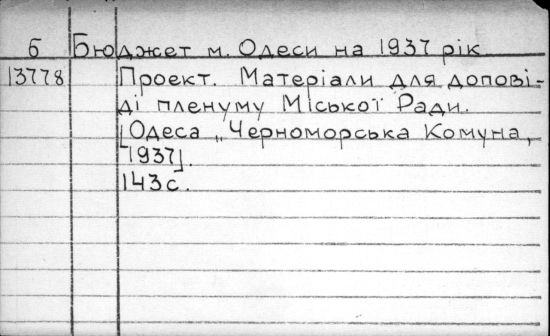 б Бюджет м. Одеси на 1937 рік
13778 Проект. Матеріали для допові-
ді пленуму Міської Ради.
[Одеса „Черноморська Комуна,
1937].
143с.